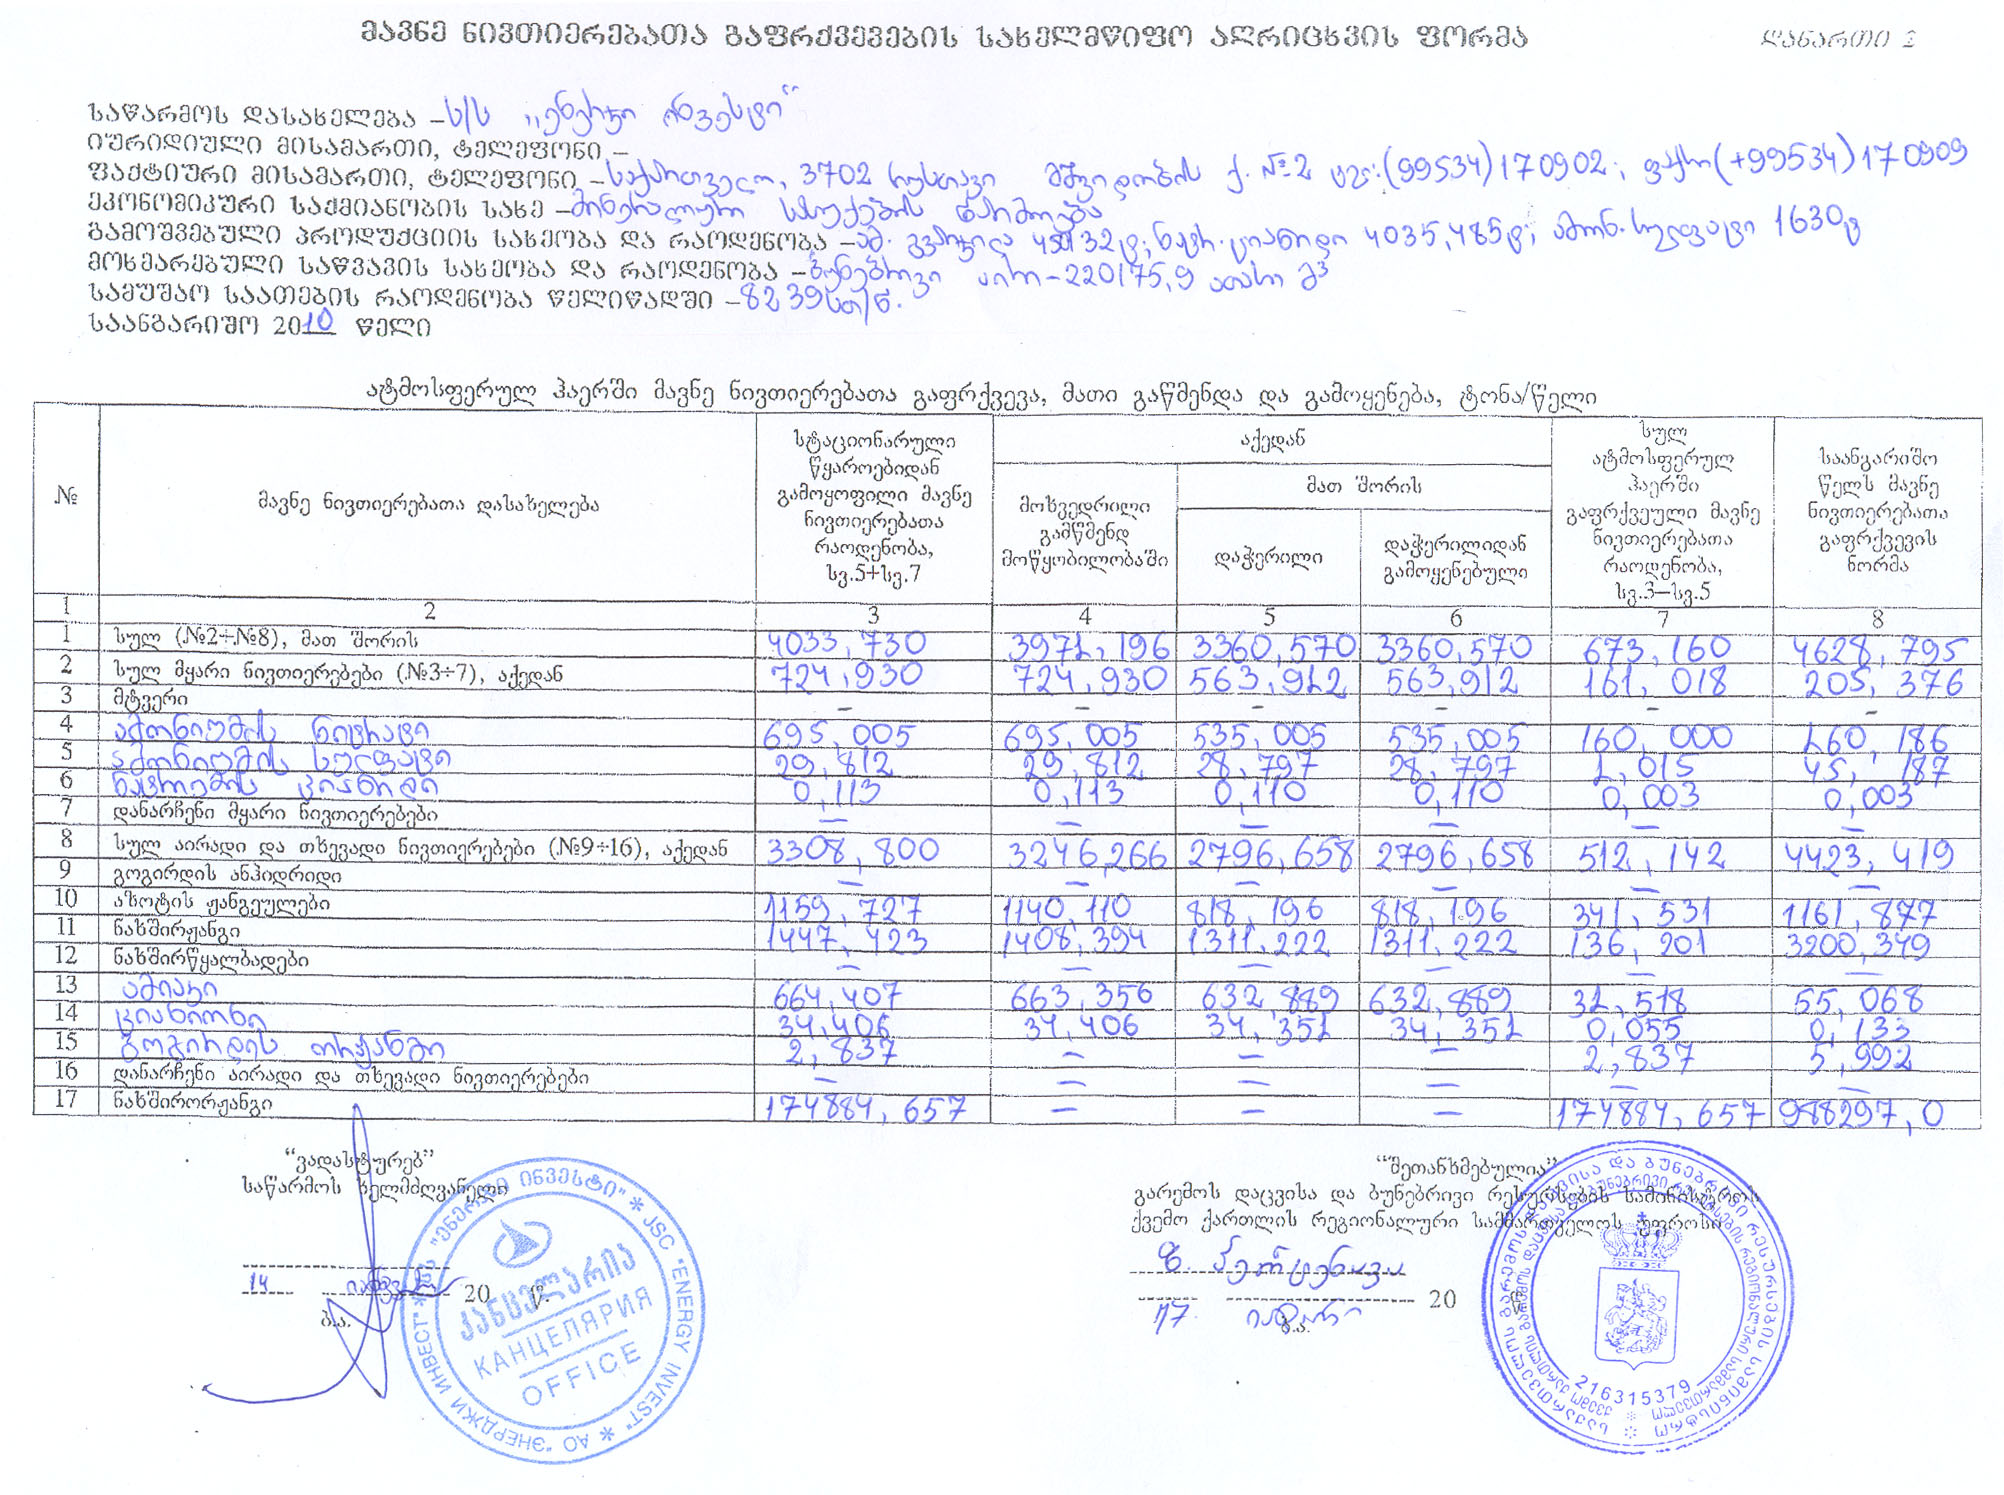 მავნე ნივთიერებათა გაფრქვევების სახელმწიფო აღრიცხვის ფორმა
დანართი 2
საწარმოს დასახელება – ს/ს „ენერჯი ინვესტი“
იურიდიული მისამართი, ტელეფონი –
ფაქტიური მისამართი, ტელეფონი – საქართველო, 3702 რუსთავი მშვიდობის ქ. №2 ტელ:(99534)170902; ფაქსი(+99534)170909
ეკონომიკური საქმიანობის სახე – მინერალური სასუქების წარმოება
გამოშვებული პროდუქციის სახეობა და რაოდენობა – ამ. გვარჯილა ტ; ნატრ. ციანიდი 4035,485ტ; ამონ. სულფატი 1630ტ
მოხმარებული საწვავის სახეობა და რაოდენობა – ბუნებრივი აირი – 220175,9 ათასი მ³
სამუშაო საათების რაოდენობა წელიწადში – 8239 სთ/წ.
საანგარიშო 2010 წელი
ატმოსფერულ ჰაერში მავნე ნივთიერებათა გაფრქვევა, მათი გაწმენდა და გამოყენება, ტონა/წელი
№ მავნე ნივთიერებათა დასახელება
სტაციონარული
წყაროებიდან
გამოყოფილი მავნე
ნივთიერებათა
რაოდენობა,
სვ.5+სვ.7
აქედან
მოხვედრილი
გამწმენდ
მოწყობილობაში
მათ შორის
დაჭერილი
დაჭერილიდან
გამოყენებული
სულ
ატმოსფერულ
ჰაერში
გაფრქვეული მავნე
ნივთიერებათა
რაოდენობა,
სვ.3–სვ.5
საანგარიშო
წელს მავნე
ნივთიერებათა
გაფრქვევის
ნორმა
1 2 3 4 5 6 7 8
1 სულ (№2÷№8), მათ შორის 4033,730 3971,196 3360,570 3360,570 673,160 4628,795
2 სულ მყარი ნივთიერებები (№3÷7), აქედან 724,930 724,930 563,912 563,912 161,018 205,376
3 მტვერი – – – – – –
4 ამონიუმის ნიტრატი 695,005 695,005 535,005 535,005 160,000 160,186
5 ამონიუმის სულფატი 29,812 29,812 28,797 28,797 1,015 45,187
6 ნატრიუმის ციანიდი 0,113 0,113 0,110 0,110 0,003 0,003
7 დანარჩენი მყარი ნივთიერებები – – – – – –
8 სულ აირადი და თხევადი ნივთიერებები (№9÷16), აქედან 3308,800 3246,266 2796,658 2796,658 512,142 4423,419
9 გოგირდის ანჰიდრიდი – – – – – –
10 აზოტის ჟანგეულები 1159,727 1140,110 818,196 818,196 341,531 1161,877
11 ნახშირჟანგი 1447,423 1408,394 1311,222 1311,222 136,201 3200,349
12 ნახშირწყალბადები – – – – – –
13 ამიაკი 664,407 663,356 632,889 632,889 31,518 55,068
14 ციანიონი 34,406 34,406 34,351 34,351 0,055 0,133
15 გოგირდის ორჟანგი 2,837 – – – 2,837 5,992
16 დანარჩენი აირადი და თხევადი ნივთიერებები – – – – – –
17 ნახშირორჟანგი 174884,657 – – – 174884,657 988297,0
“ვადასტურებ”
საწარმოს ხელმძღვანელი
14 იანვარი 20 წ.
ბ.ა.
სს "ენერჯი ინვესტი" * JSC "ENERGY INVEST" * АО "ЭНЕРДЖИ ИНВЕСТ" *
კანცელარია
КАНЦЕЛЯРИЯ
OFFICE
“შეთანხმებულია”
გარემოს დაცვისა და ბუნებრივი რესურსების სამინისტროს
ქვემო ქართლის რეგიონალური სამმართველოს უფროსი
17 იანვარი 20 წ.
ბ.ა.
საქართველოს გარემოს დაცვისა და ბუნებრივი რესურსების სამინისტრო
216315379